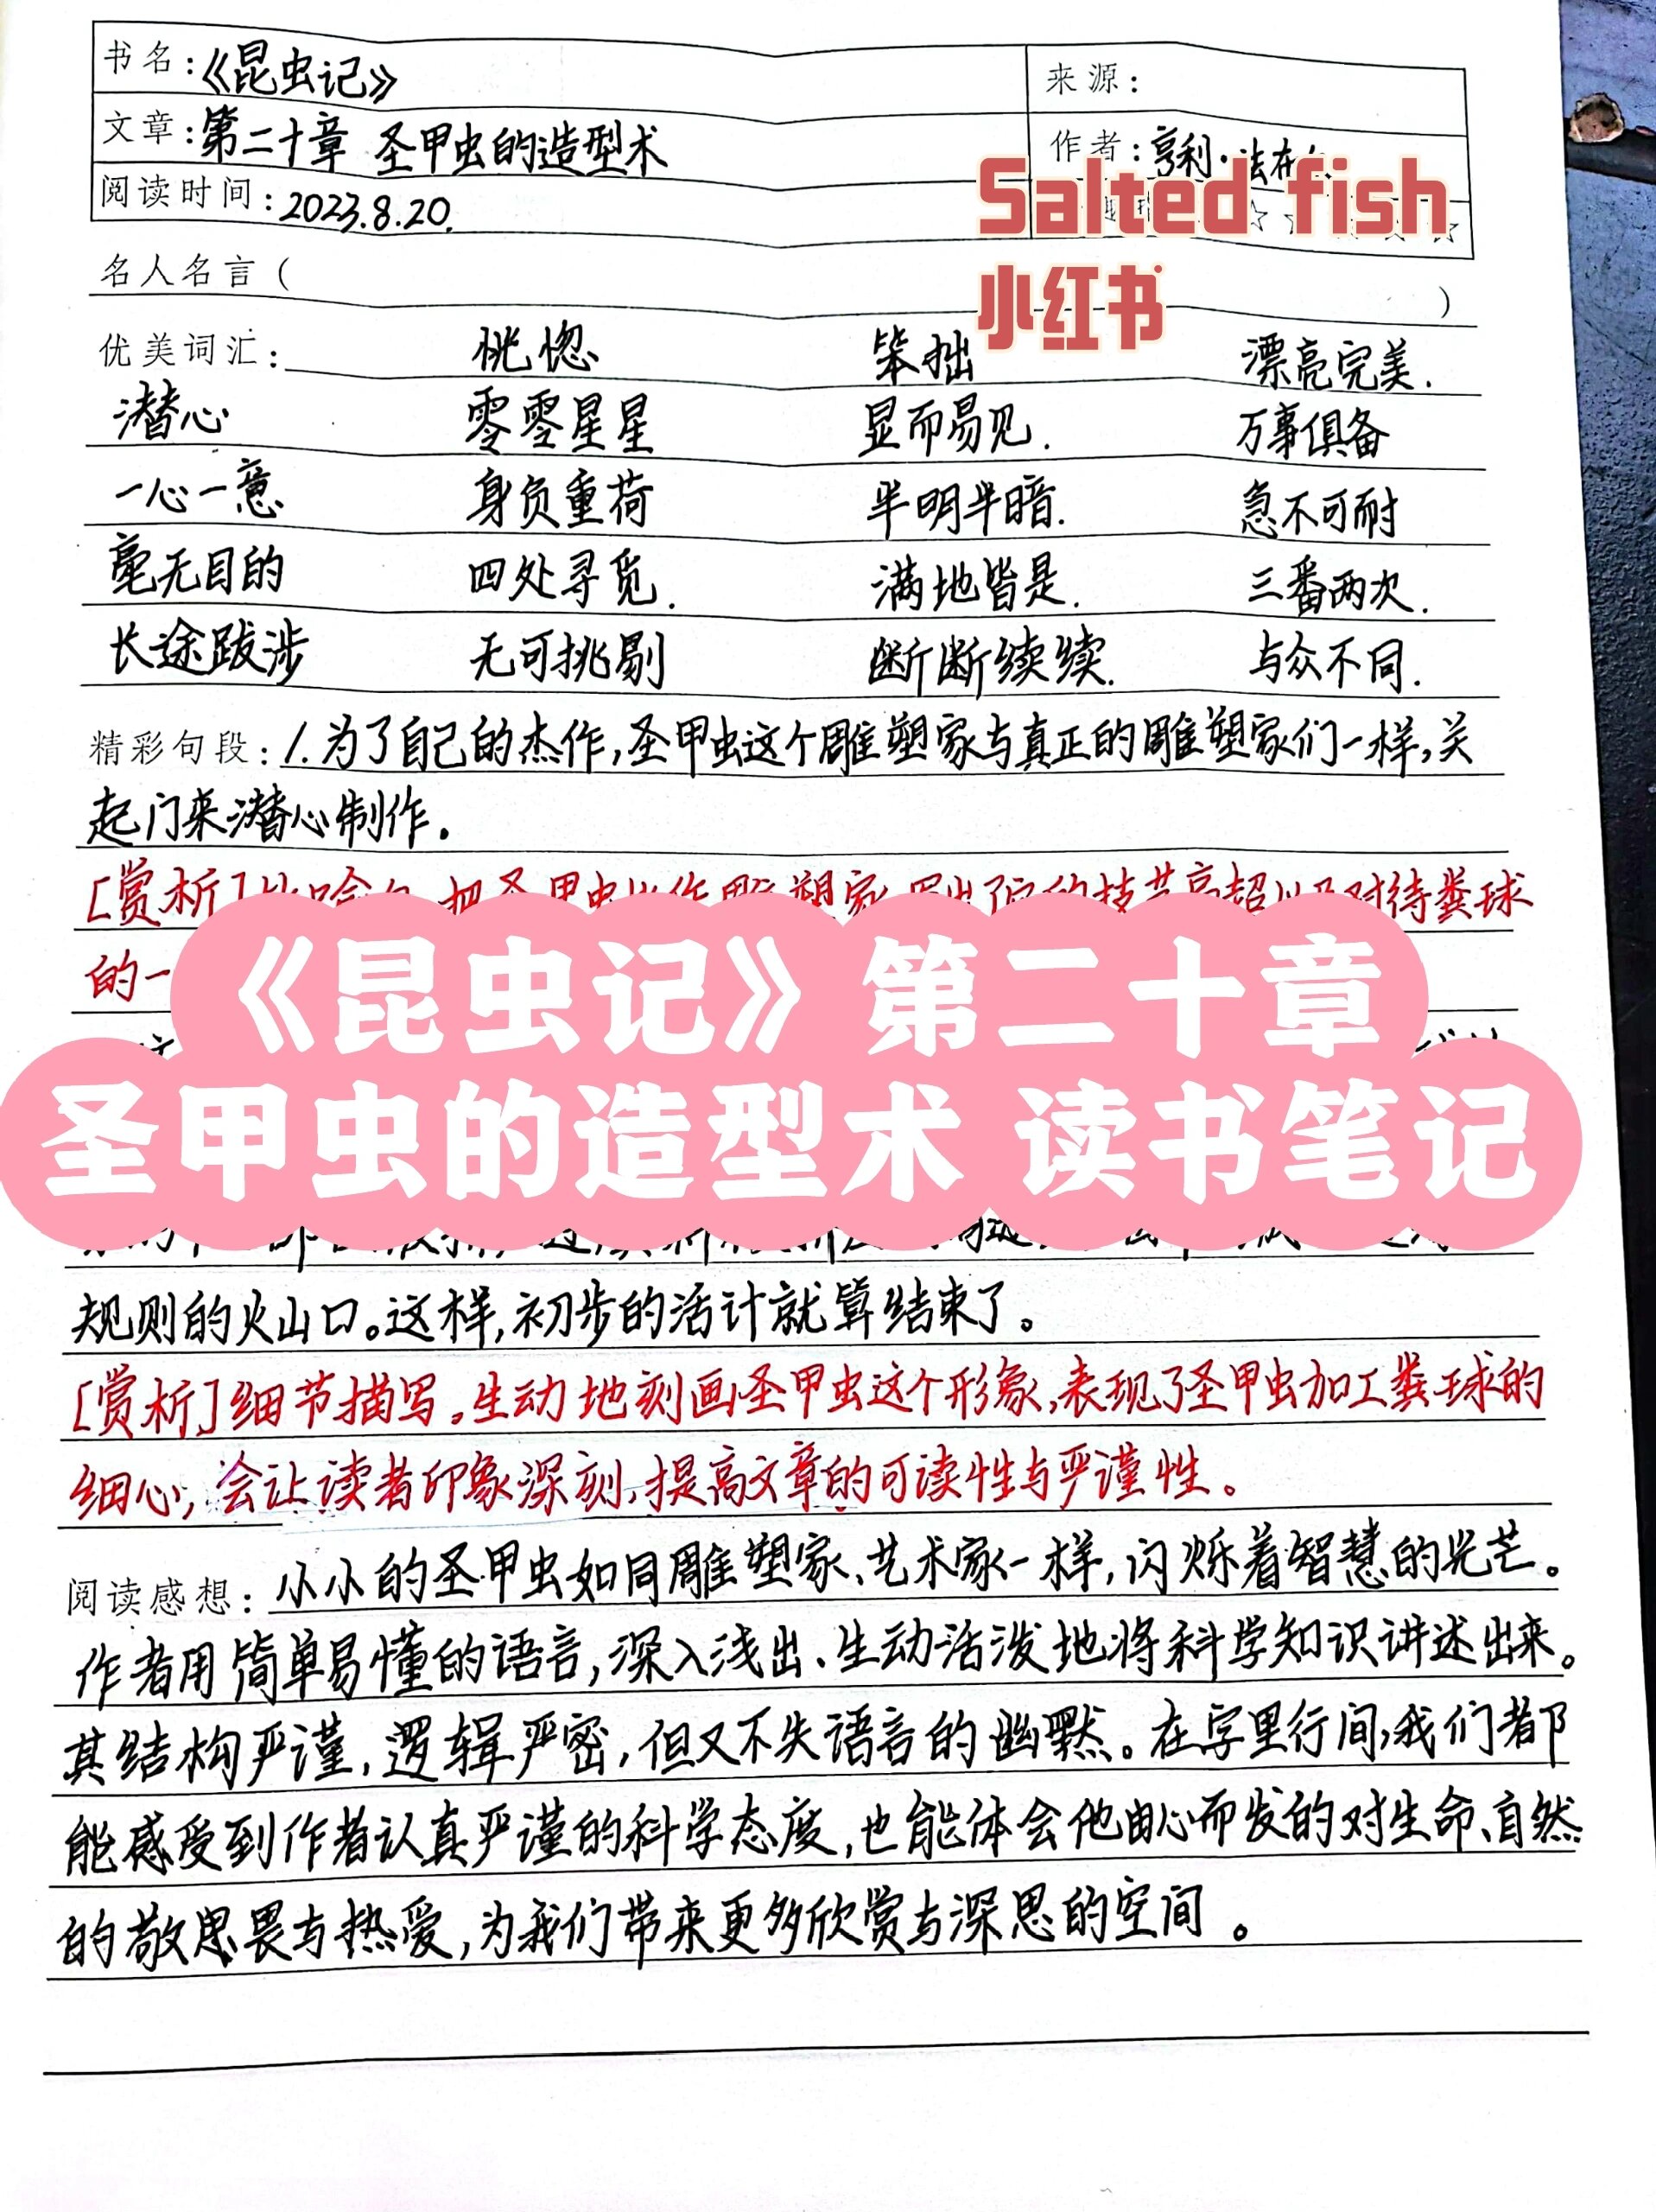 书名:《昆虫记》
来源:
文章:第二十章 圣甲虫的造型术
作者:亨利·法布
阅读时间:2023.8.20.
Salted fish
小红书
名人名言( )
优美词汇: 恍惚 笨拙 漂亮完美.
潜心 零零星星 显而易见. 万事俱备
一心一意 身负重荷 半明半暗. 急不可耐
毫无目的 四处寻觅. 满地皆是. 三番两次.
长途跋涉 无可挑剔 断断续续. 与众不同.
精彩句段: 1.为了自己的杰作,圣甲虫这个雕塑家与真正的雕塑家们一样,关
起门来潜心制作.
[赏析] 对待粪球
的一
《昆虫记》第二十章
圣甲虫的造型术 读书笔记
规则的火山口。这样,初步的活计就算结束了。
[赏析]细节描写。生动地刻画圣甲虫这个形象,表现了圣甲虫加工粪球的
细心,会让读者印象深刻,提高文章的可读性与严谨性。
阅读感想: 小小的圣甲虫如同雕塑家、艺术家一样,闪烁着智慧的光芒。
作者用简单易懂的语言,深入浅出、生动活泼地将科学知识讲述出来。
其结构严谨,逻辑严密,但又不失语言的幽默。在字里行间,我们都
能感受到作者认真严谨的科学态度,也能体会他由心而发的对生命、自然
的敬思畏与热爱,为我们带来更多欣赏与深思的空间。